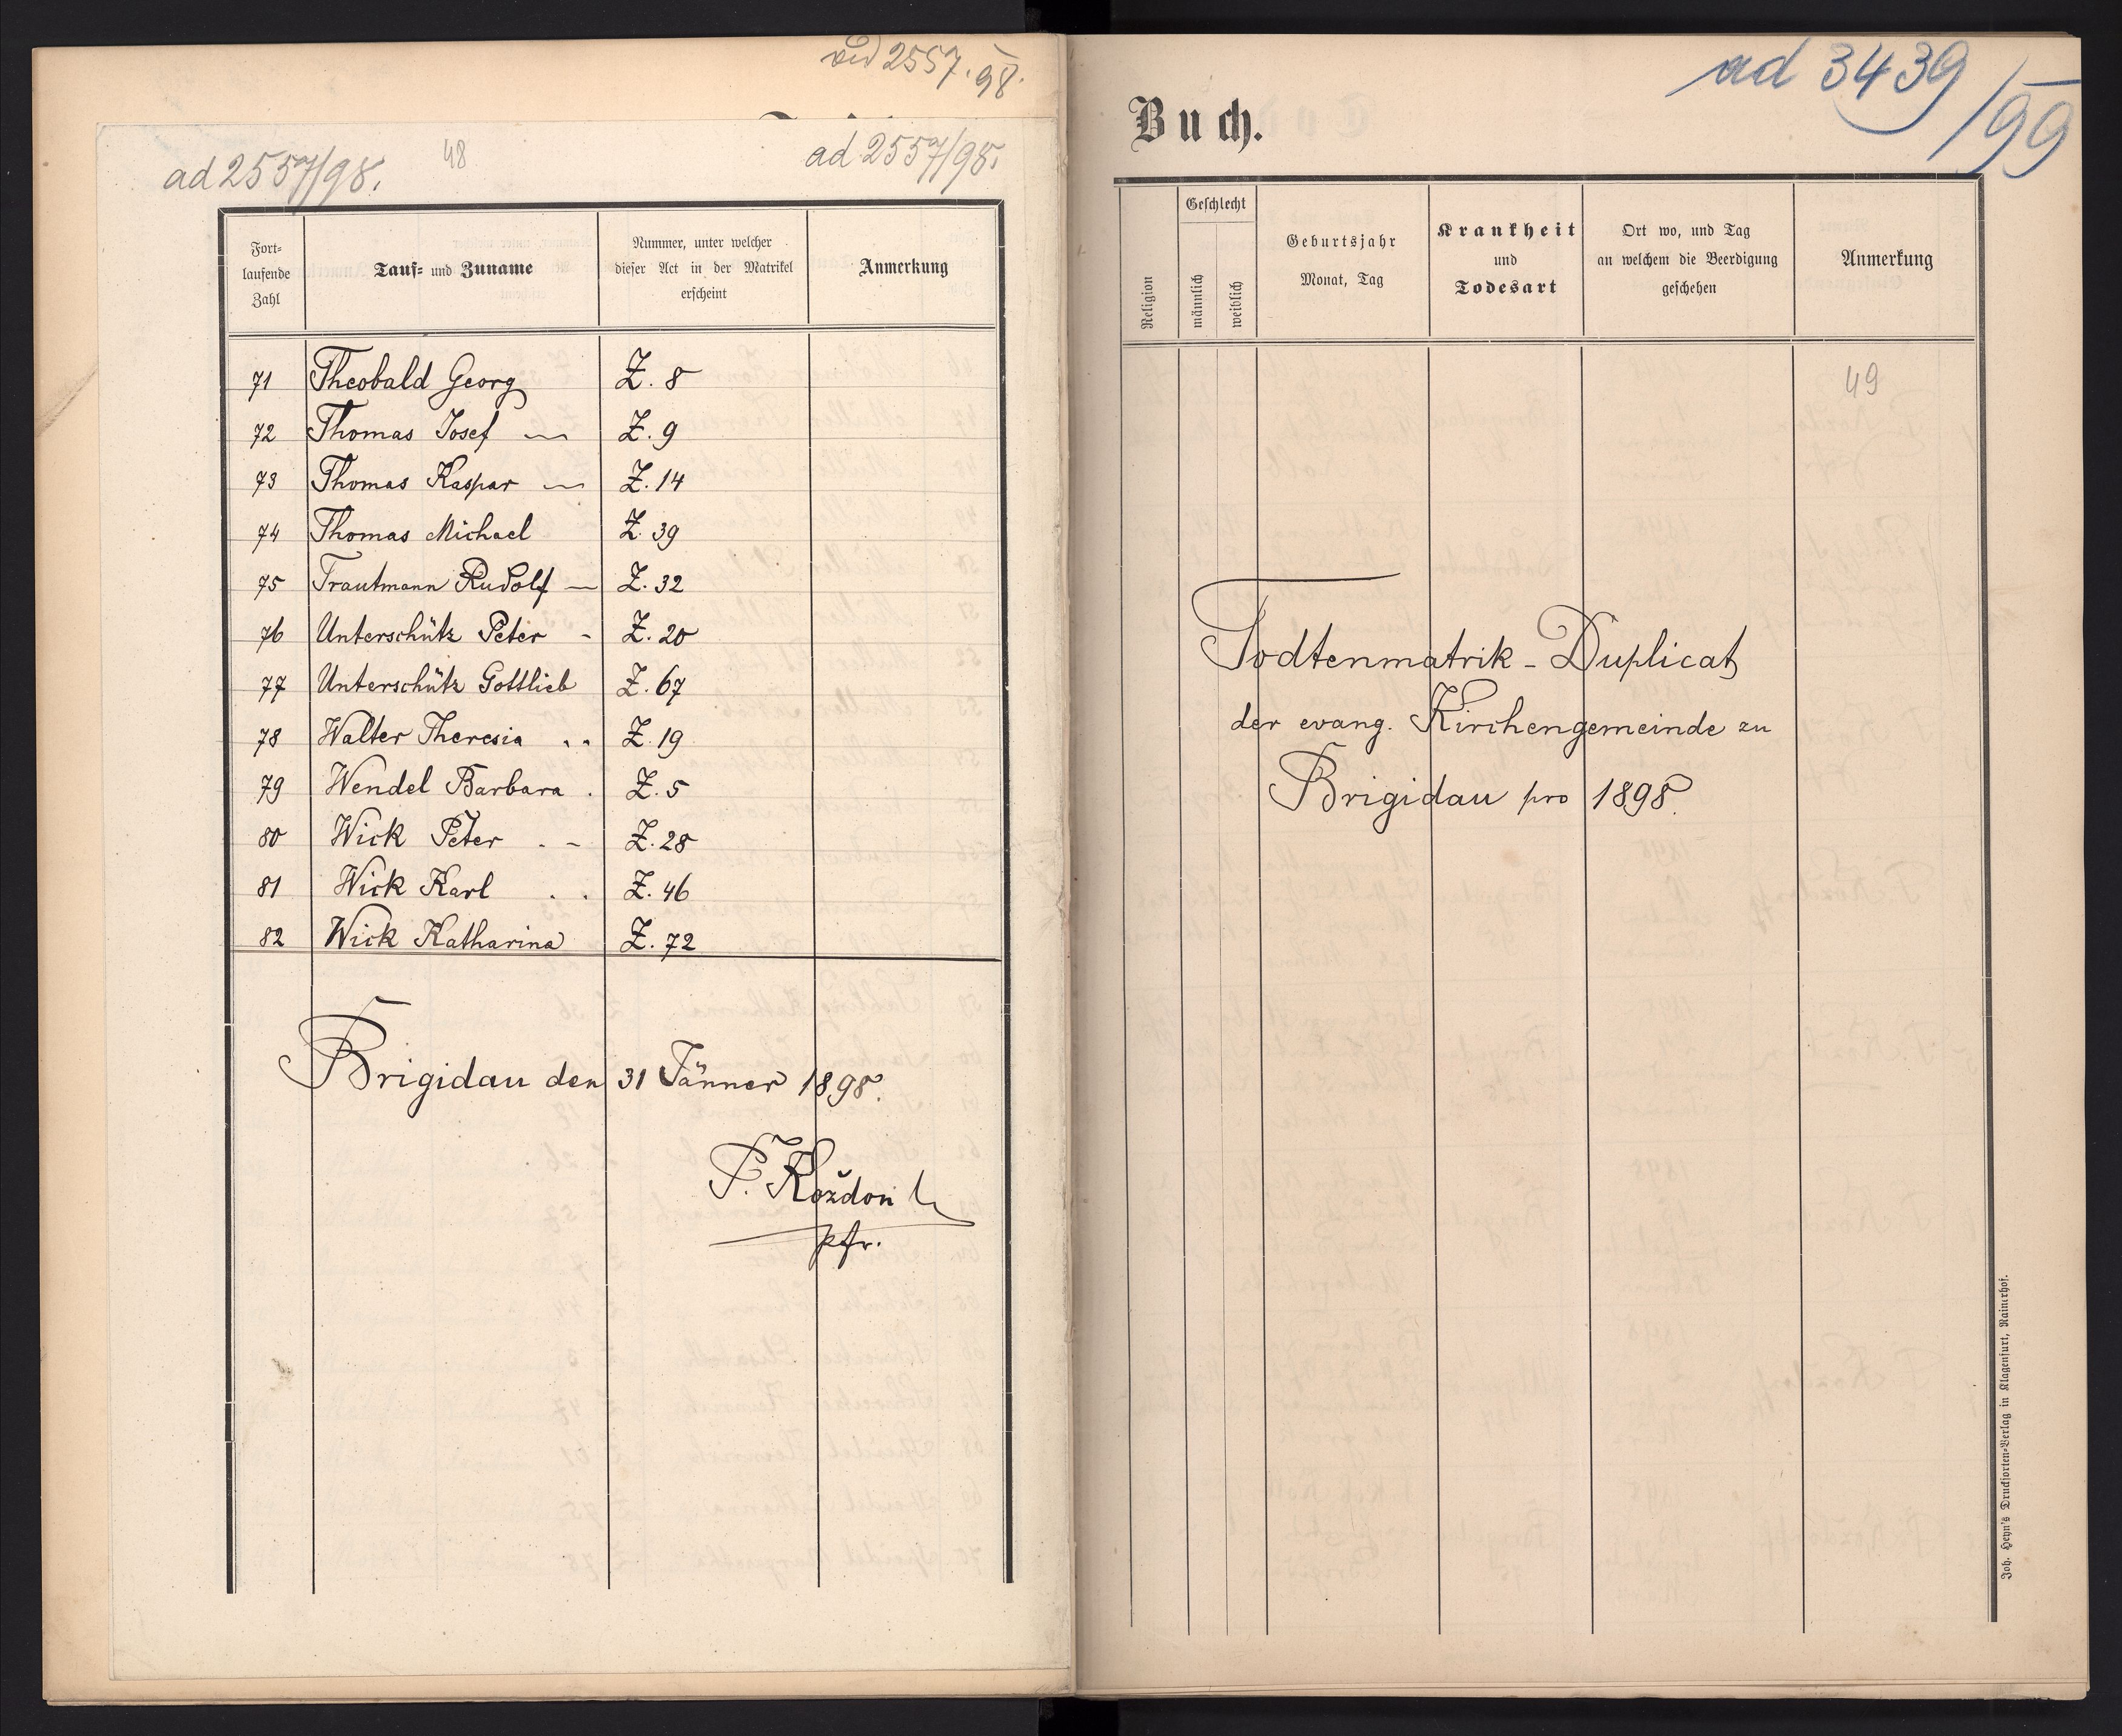 ad 2557/98.
ad 2557/98.
48
ad 2557/98.
Fort-
laufende
Zahl
Tauf- und Zuname
Nummer, unter welcher
dieser Act in der Matrikel
erscheint
Anmerkung
71 Theobald Georg Z. 8
72 Thomas Josef Z. 9
73 Thomas Kaspar Z. 14
74 Thomas Michael Z. 39
75 Trautmann Rudolf Z. 32
76 Unterschütz Peter Z. 20
77 Unterschütz Gottlieb Z. 67
78 Walter Theresia Z. 19
79 Wendel Barbara Z. 5
80 Wick Peter Z. 28
81 Wick Karl Z. 46
82 Wick Katharina Z. 72
Brigidau den 31 Jänner 1898.
P. Koždon
Pfr.
ad 3439/99
Buch.
Religion
Geschlecht
männlich
weiblich
Geburtsjahr
Monat, Tag
Krankheit
und
Todesart
Ort wo, und Tag
an welchem die Beerdigung
geschehen
Anmerkung
49
Todtenmatrik-Duplicat
der evang. Kirchengemeinde zu
Brigidau pro 1898.
Joh. Heyn's Drucksorten-Verlag in Klagenfurt, Rainerhof.